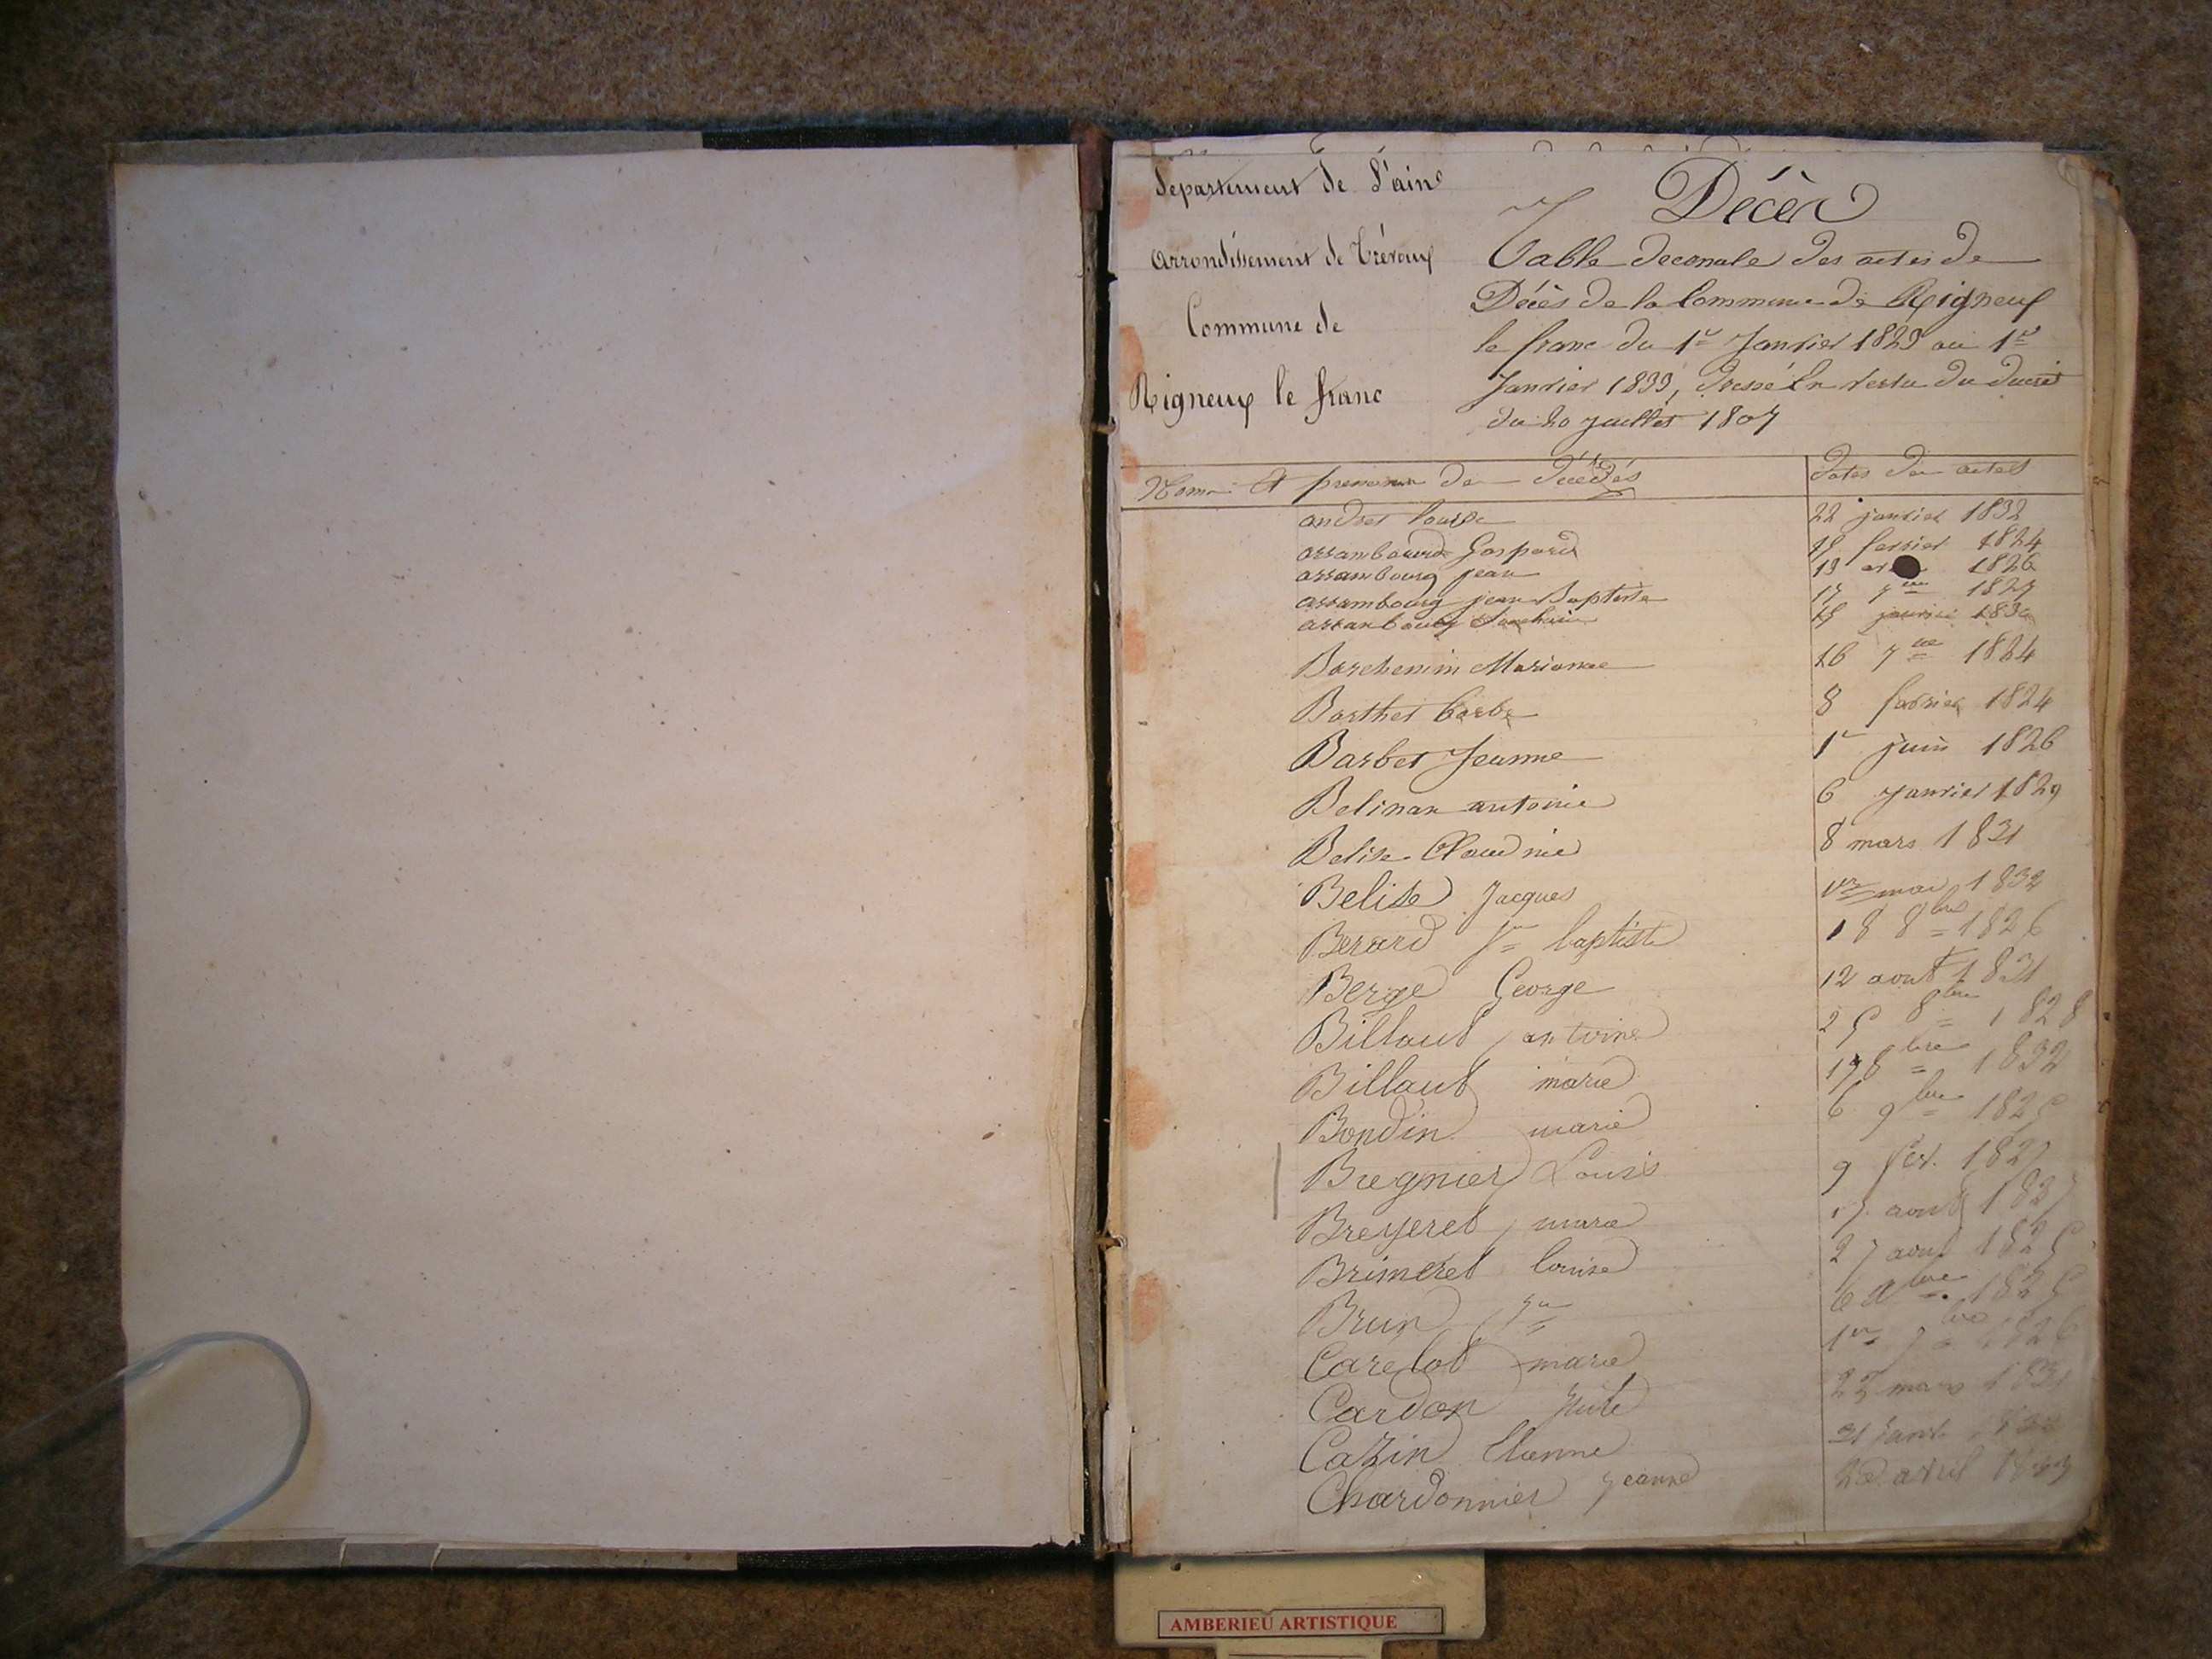 Département de L'ain
Arrondissement de Trévoux
Commune de
Rigneux le franc
Décès
Table decenale des actes de
Décès de la Commune de Rigneux
le franc du 1er Janvier 1823 au 1er
Janvier 1833, dressé En vertu du decret
du 20 juillet 1807
Noms et prenoms des décédés dates des actes
andret louise 22 janvier 1832
assambourd Gaspard fevrier 1824
assambourg jean 19 1826
assambourg jean Baptiste 17 7bre 1827
assambourg 18 janvier
Barchenin Marianne 16 7bre 1824
Barthet barbe 8 fevrier 1824
Barbet Jeanne 1er juin 1826
Belinan antoine 6 Janvier 1829
Belise Claudine 8 mars 1831
Belise Jacques 1er mai 1832
Berard Jn baptiste 18 8bre 1826
Berge George 12 aout 1831
Billaut antoine 25 8bre 1828
Billaut marie 17 8bre 1832
Bondin marie 6 9bre 1825
Bregnier Louis 9 fév. 1827
Breyeret marie 17 aout
Brimeret louise 27 aout 1825
Brun Jn 6 Xbre 1825
Carelot marie 1er 1826
Cardon 22 mars 1831
Cazin Etienne 21 janv.
Chardonnier Jeanne avril
AMBERIEU ARTISTIQUE